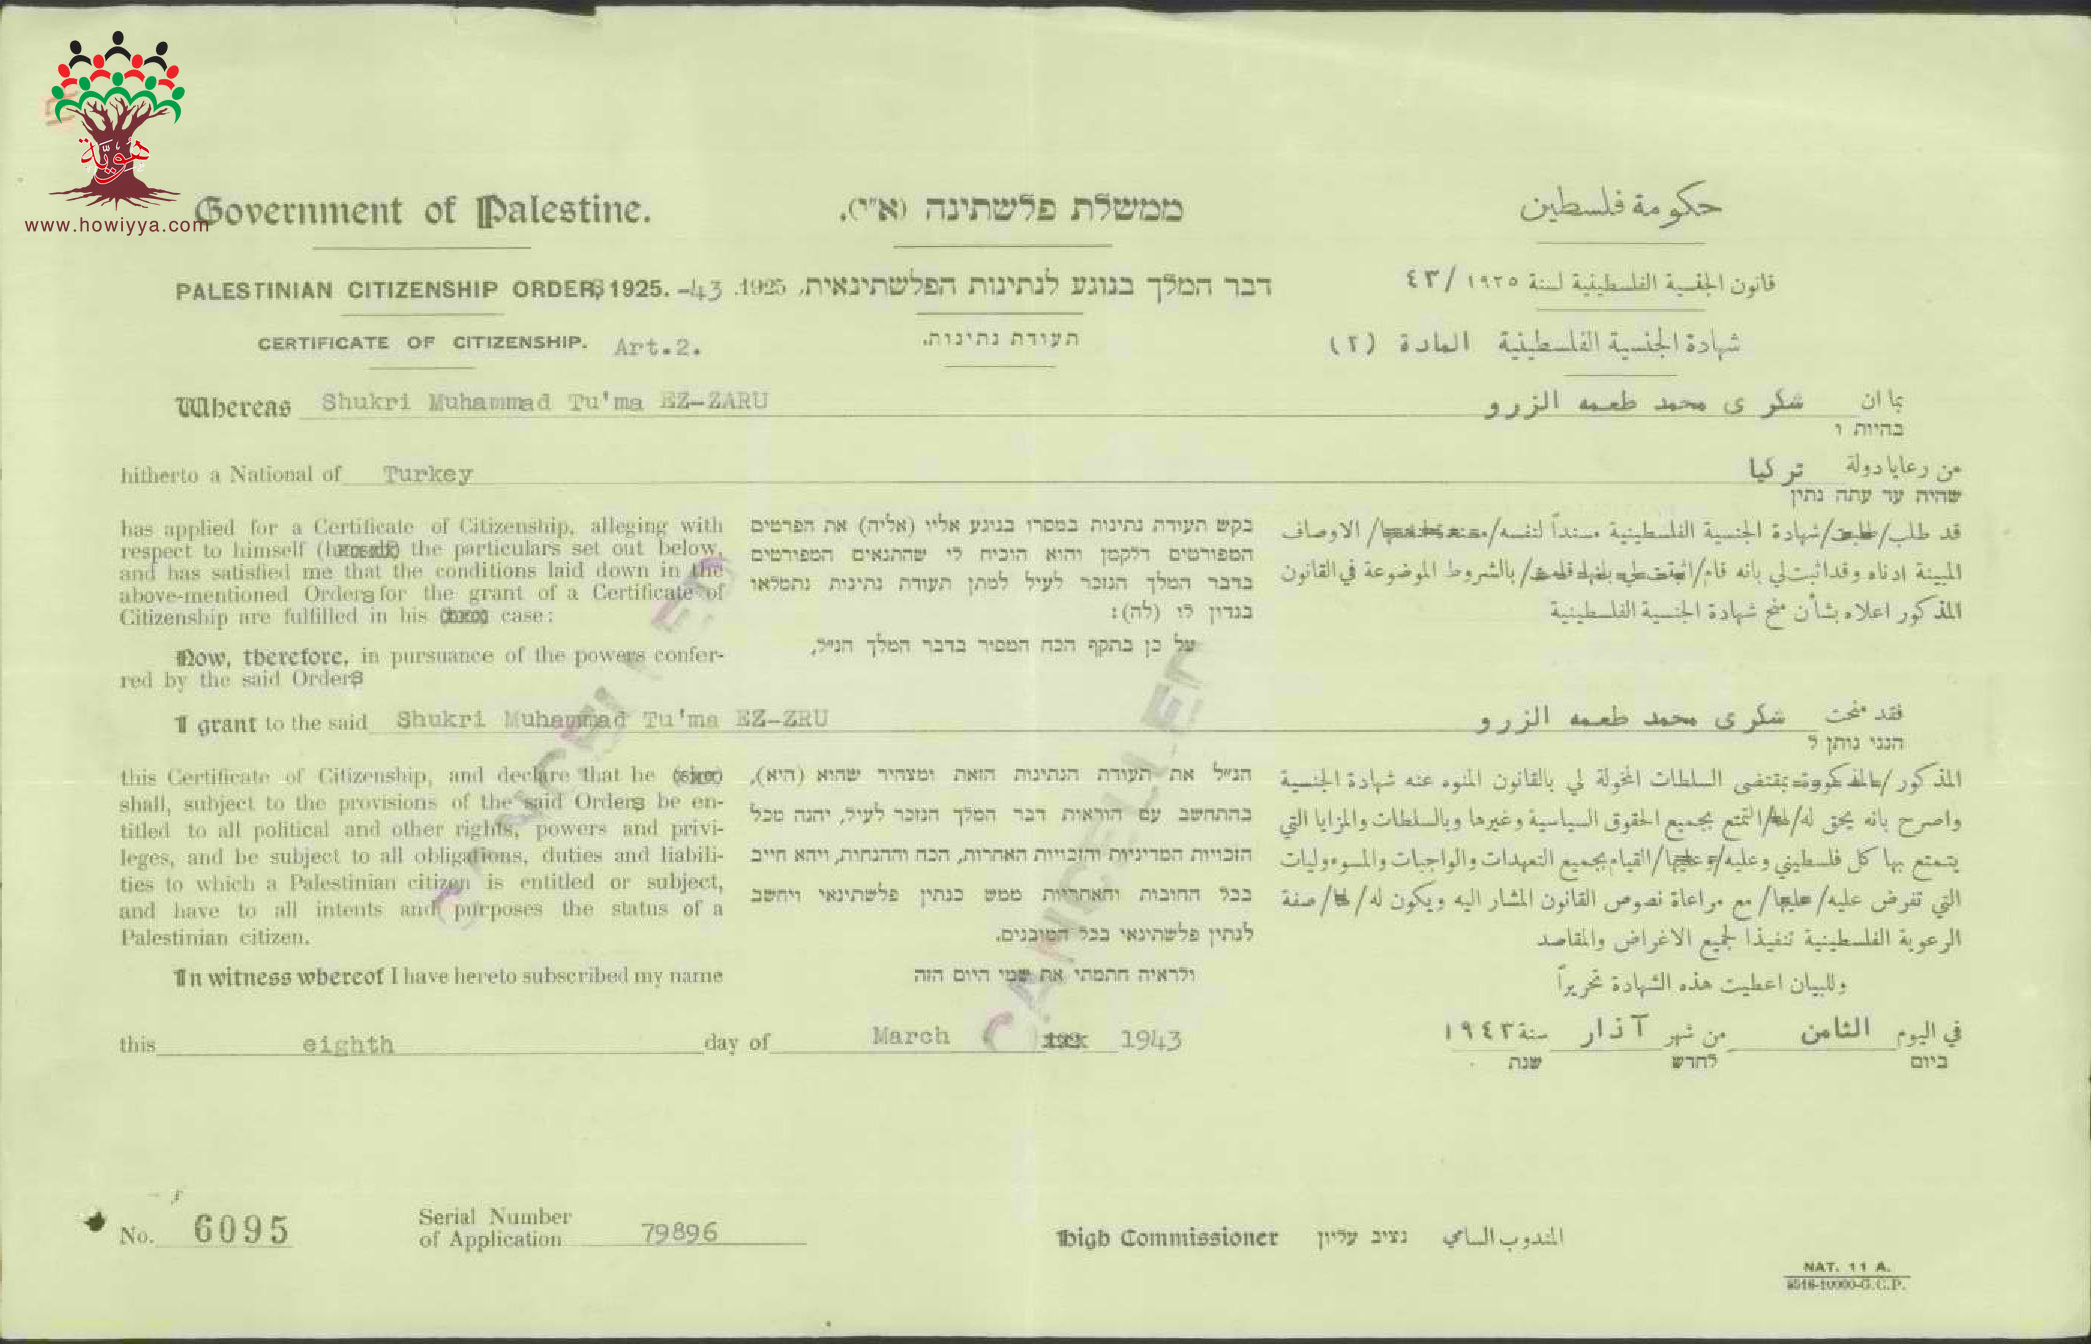 هُويَّة
www.howiyya.com
Government of Palestine.
ממשלת פלשתינה (א"י).
حكومة فلسطين
PALESTINIAN CITIZENSHIP ORDERS 1925. -43
דבר המלך בנוגע לנתינות הפלשתינאית, 1925.
قانون الجنسية الفلسطينية لسنة ١٩٢٥ /٤٣
CERTIFICATE OF CITIZENSHIP. Art.2.
תעודת נתינות.
شهادة الجنسية الفلسطينية المادة (٢)
Whereas Shukri Muhammad Tu'ma EZ-ZARU
بما ان شكرى محمد طعمه الزرو
בהיות ו
hitherto a National of Turkey
من رعايا دولة تركيا
שהיה עד עתה נתין
has applied for a Certificate of Citizenship, alleging with
respect to himself the particulars set out below,
and has satisfied me that the conditions laid down in the
above-mentioned Orders for the grant of a Certificate of
Citizenship are fulfilled in his case:
Now, therefore, in pursuance of the powers confer-
red by the said Orders
בקש תעודת נתינות במסרו בנוגע אליו (אליה) את הפרטים
המפורטים דלקמן והוא הוכיח לי שהתנאים המפורטים
בדבר המלך הנזכר לעיל למתן תעודת נתינות נתמלאו
בנדון לו (לה):
על כן בתקף הכח המסור בדבר המלך הנ"ל,
قد طلب/شهادة الجنسية الفلسطينية مسنداً لنفسه/ الاوصاف
المبينة ادناه وقد اثبت لي بانه قام/ بالشروط الموضوعة في القانون
المذكور اعلاه بشأن منح شهادة الجنسية الفلسطينية
I grant to the said Shukri Muhammad Tu'ma EZ-ZRU
فقد منحت شكرى محمد طعمه الزرو
הנני נותן ל
this Certificate of Citizenship, and declare that he
shall, subject to the provisions of the said Orders be en-
titled to all political and other rights, powers and privi-
leges, and be subject to all obligations, duties and liabili-
ties to which a Palestinian citizen is entitled or subject,
and have to all intents and purposes the status of a
Palestinian citizen.
הנ"ל את תעודת הנתינות הזאת ומצהיר שהוא (היא),
בהתחשב עם הוראות דבר המלך הנזכר לעיל, יהנה מכל
הזכויות המדיניות והזכויות האחרות, הכח וההנחות, ויהא חייב
בכל החובות והאחריות ממש כנתין פלשתינאי ויחשב
לנתין פלשתינאי בכל המובנים.
المذكور/ بمقتضى السلطات المخولة لي بالقانون المنوه عنه شهادة الجنسية
واصرح بانه يحق له/ التمتع بجميع الحقوق السياسية وغيرها وبالسلطات والمزايا التي
يتمتع بها كل فلسطيني وعليه/ القيام بجميع التعهدات والواجبات والمسوءوليات
التي تفرض عليه/ مع مراعاة نصوص القانون المشار اليه ويكون له/ صفة
الرعوية الفلسطينية تنفيذا لجميع الاغراض والمقاصد
In witness whereof I have hereto subscribed my name
ולראיה חתמתי את שמי היום הזה
وللبيان اعطيت هذه الشهادة تحريراً
this eighth day of March 1943
في اليوم الثامن من شهر آذار سنة ١٩٤٣
ביום לחדש שנת
CANCELLED
CANCELLED
No. 6095
Serial Number
of Application 79896
High Commissioner נציב עליון المندوب السامي
NAT. 11 A.